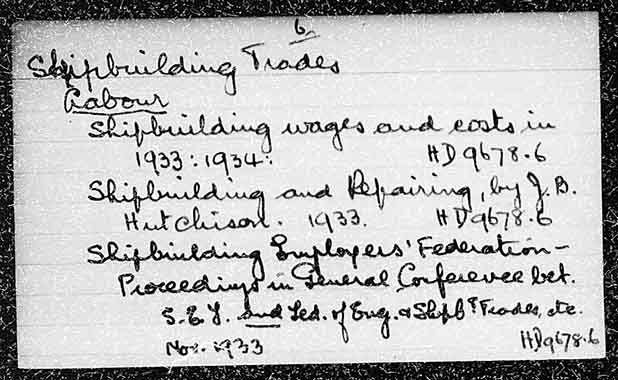 6.
Shipbuilding Trades
Labour
Shipbuilding wages and costs in
1933: 1934: HD 9678.6
Shipbuilding and Repairing, by J.B.
Hutchison. 1933. HD 9678.6
Shipbuilding Employers' Federation -
Proceedings in General Conference bet.
S.E.F. and Fed. of Eng. & Shipbg Trades, etc.
Nov. 1933 HD9678.6